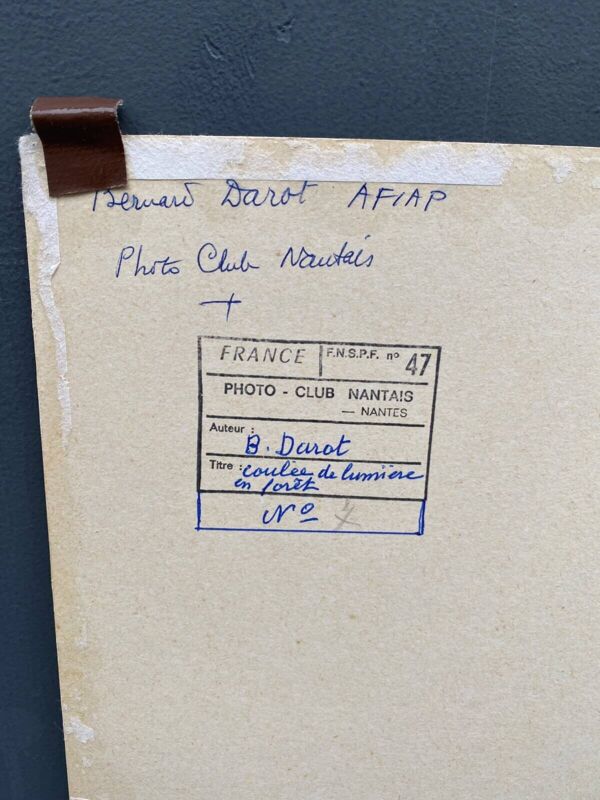 Bernard Darot AFIAP
Photo Club Nantais
FRANCE F.N.S.P.F. nº 47
PHOTO - CLUB NANTAIS
— NANTES
Auteur :
B. Darot
Titre : coulée de lumière
en forêt
Nº